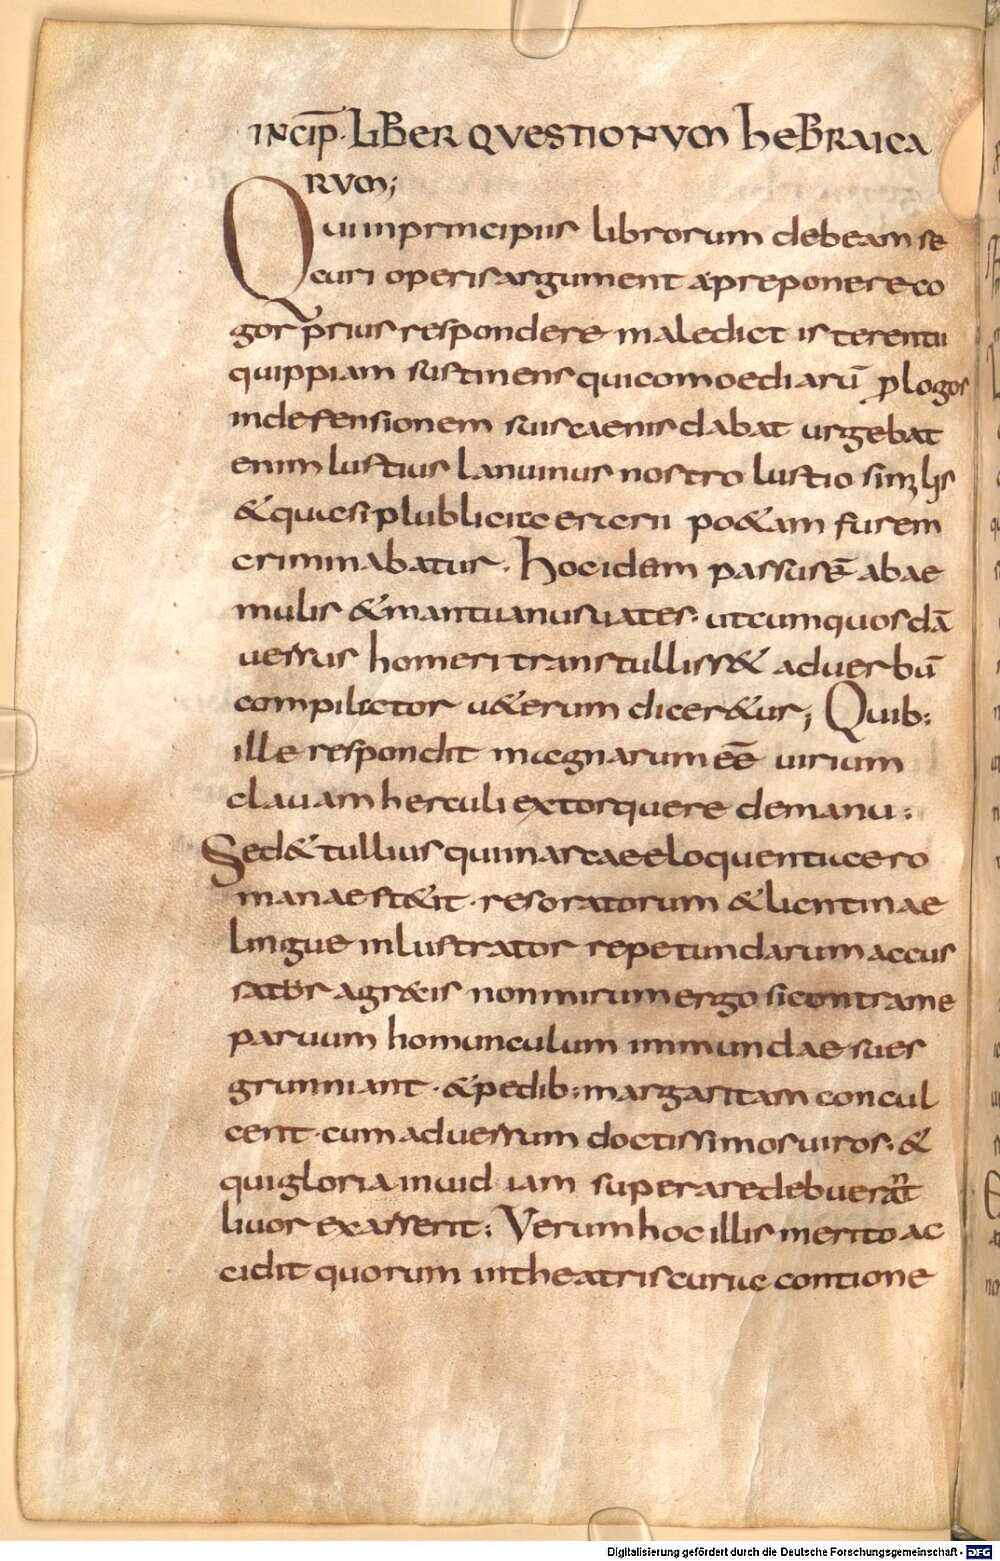 INCIP̄· LIBER QVESTIONVM HEBRAICA
RVM;
Qui in principiis librorum debeam se
curi operis argumenta preponere co
gor prius respondere maledictis terentii
quippiam sustinens qui comoediarū prologos
in defensionem sui scaenis dabat urgebat
enim lustius lanuinus nostro lustio similis
& quasi publici aerarii po&am furem
criminabatur· Hoc idem passus ē abae
mulis & mantuanus uates· ut cum quosdā
uersus homeri transtulliss& ad uerbū
compilator u&erum dicer&ur; Quib:
ille respondit magnarum eē uirium
clauam herculi extorquere de manu:
Sed & tullius qui in arcae eloquentiae ro
manae st&it· res oratorum & licentinae
lingue inlustrator repetundarum accus
sator a gr&is non mirum ergo si contra me
paruum homunculum immundae sues
grunniant· & pedib: margaritam concul
cent· cum aduersum doctissimos uiros· &
qui gloria inuidiam superare debuerant
liuor exasserit; Verum hoc illis merito ac
cidit quorum in theatris curia contione
Digitalisierung gefördert durch die Deutsche Forschungsgemeinschaft - DFG